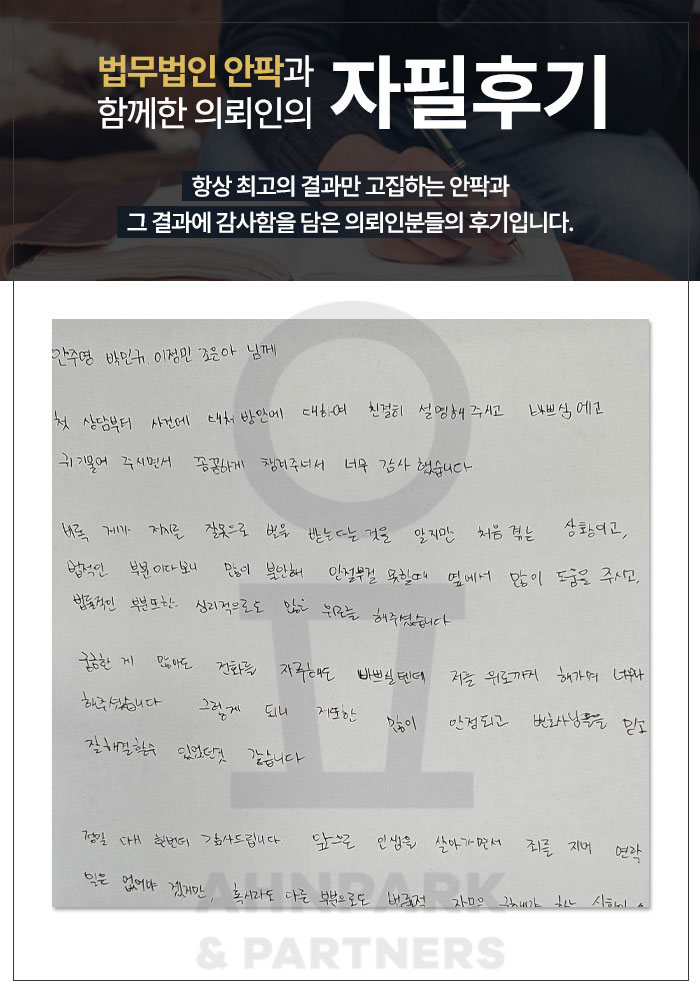 법무법인 안팍과
함께한 의뢰인의
자필후기
항상 최고의 결과만 고집하는 안팍과
그 결과에 감사함을 담은 의뢰인분들의 후기입니다.
안주영 박민규 이정민 조은아 님께
첫 상담부터 사건에 대처 방안에 대하여 친절히 설명해 주시고 바쁘심에도
귀 기울여 주시면서 꼼꼼하게 챙겨주셔서 너무 감사했습니다
비록 제가 저지른 잘못으로 벌을 받는다는 것을 알지만 처음 겪는 상황이고,
법적인 부분이다보니 많이 불안해 안절부절 못할때 옆에서 많이 도움을 주시고,
법률적인 부분또한 심리적으로도 많은 위로를 해주셨습니다
궁금한 게 많아도 전화를 자주해도 바쁘실텐데 저를 위로까지 해가며
해주셨습니다 그렇게 되니 저또한 많이 안정되고 변호사님들을 믿고
잘 해결할수 있었던것 같습니다
정말 다시 한번더 감사드립니다. 앞으로 인생을 살아가면서 죄를 지어 연락
일은 없어야 겠지만, 혹시라도 다른 부분으로도 법률적 자문을 구해야 하는
AHNPARK
& PARTNERS